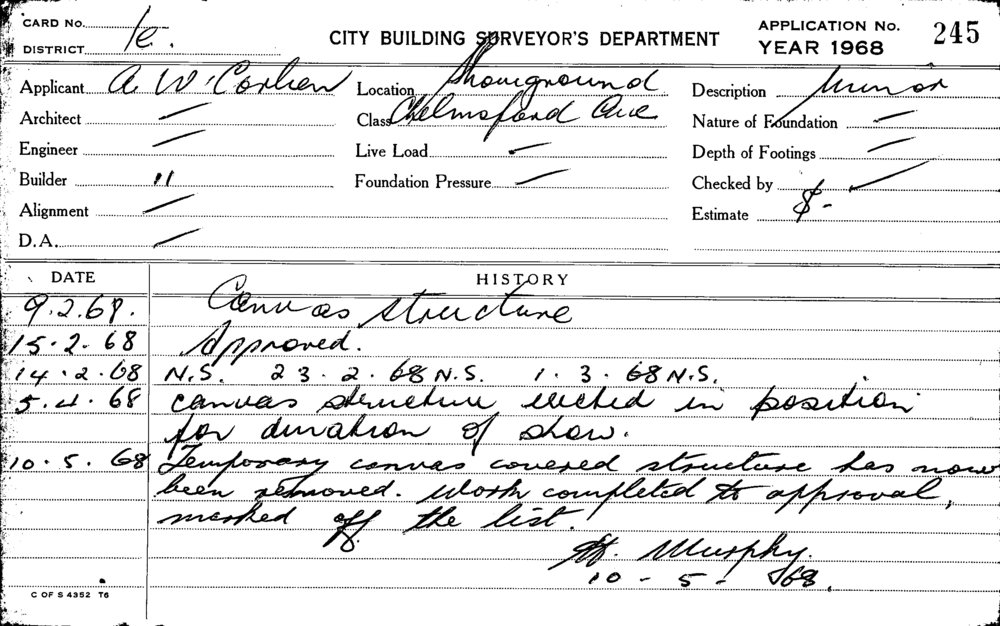 CARD NO.
DISTRICT Ie.
CITY BUILDING SURVEYOR'S DEPARTMENT
APPLICATION No. 245
YEAR 1968
Applicant A W
Location Showground
Description Minor
Architect —
Class Chelmsford Ave
Nature of Foundation —
Engineer —
Live Load —
Depth of Footings —
Builder "
Foundation Pressure —
Checked by
Alignment —
Estimate $ -
D.A. —
DATE HISTORY
9.2.68. Canvas structure
15.2.68 Approved.
14.2.68 N.S. 23.2.68 N.S. 1.3.68 N.S.
5.4.68 canvas structure erected in position
for duration of show.
10.5.68 Temporary canvas covered structure has now
been removed. Work completed to approval,
marked off the list.
Murphy.
10-5-68.
C OF S 4352 T6